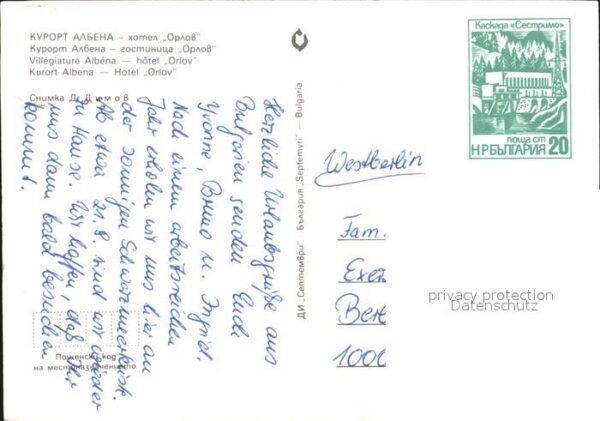 КУРОРТ АЛБЕНА – хотел „Орлов"
Курорт Албена – гостиница „Орлов"
Villégiature Albéna — hôtel „Orlov"
Kurort Albena — Hotel „Orlov"
Снимка Д. Димов
Herzliche Urlaubsgrüße aus
Bulgarien senden Euch
Yvonne, Bruno u. Ingrid.
Nach einem arbeitsreichen
Jahr erholen wir uns hier an
der sonnigen Schwarzmeerküste.
Ab etwa 21.8. sind wir wieder
zu Hause. Wir hoffen, daß Ihr
uns dann bald besuchen
kommt.
Пощенски код
на местоназначението
ДИ „Септември" — България „Septemvri" — Bulgaria
Каскада «Сестримо»
поща ст
НР БЪЛГАРИЯ 20
Westberlin
Fam.
Ber
1000
privacy protection
Datenschutz